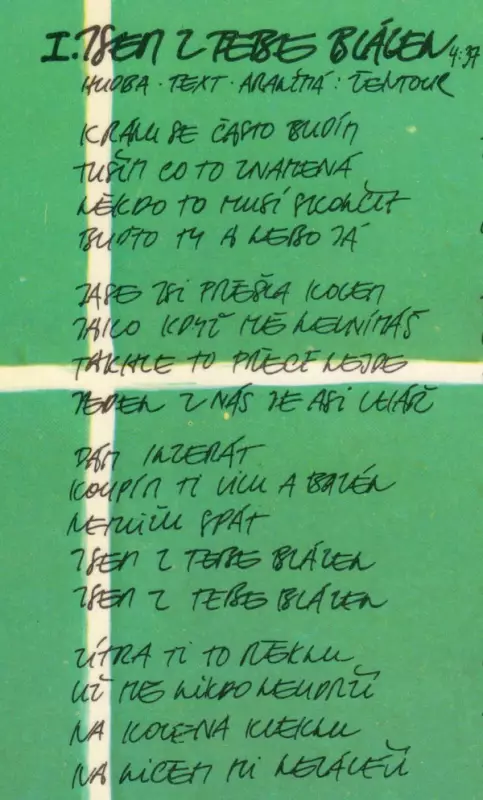 1. JSEM Z TEBE BLÁZEN 4:37
HUDBA · TEXT · ARANŽMÁ: ŽENTOUR
K RÁNU SE ČASTO BUDÍM
TUŠÍM CO TO ZNAMENÁ
NĚKDO TO MUSÍ SKONČIT
BUĎTO TY A NEBO JÁ
ZASE JSI PŘEŠLA KOLEM
JAKO KDYŽ MĚ NEVNÍMÁŠ
TAKHLE TO PŘECE NEJDE
JEDEN Z NÁS JE ASI LHÁŘ
DÁM INZERÁT
KOUPÍM TI VILU A BAZÉN
NEMŮŽU SPÁT
JSEM Z TEBE BLÁZEN
JSEM Z TEBE BLÁZEN
ZÍTRA TI TO ŘEKNU
UŽ MĚ NIKDO NEUDRŽÍ
NA KOLENA KLEKNU
NA NIČEM MI NEZÁLEŽÍ